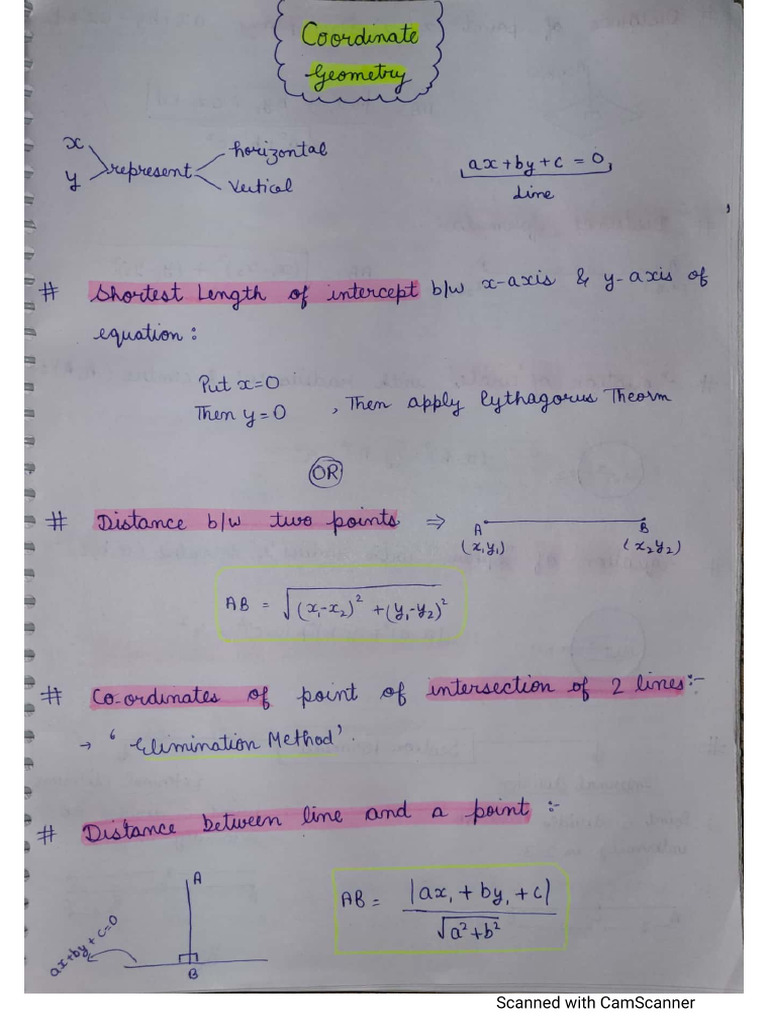 Coordinate
Geometry
x
y
represent
horizontal
Vertical
ax+by+c = 0
Line
# Shortest Length of intercept b/w x-axis & y-axis of
equation :
Put x=0
Then y=0 , Then apply Pythagorus Theorm
OR
# Distance b/w two points ⇒
A B
(x₁y₁) (x₂y₂)
AB = √(x₁-x₂)² + (y₁-y₂)²
# Co-ordinates of point of intersection of 2 lines:-
→ ‘Elimination Method’.
# Distance between line and a point :-
A
ax+by+c=0
B
AB = |ax₁ + by₁ + c| / √a²+b²
Scanned with CamScanner